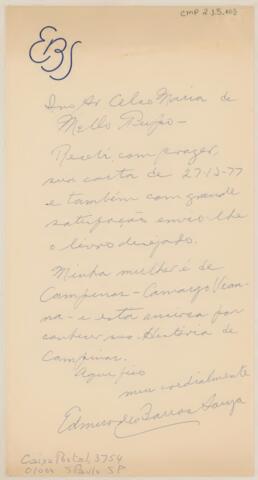 CMP 2.1.5.
EBS
Ilmo Sr. Celso Maria de
Mello Pupo -
Recebi, com prazer,
sua carta de 27-13-77
e também com grande
satisfação envio-lhe
o livro desejado.
Minha mulher é de
Campinas - Camargo Vian-
na - e está ansiosa por
conhecer sua História de
Campinas.
Aqui fico
mui cordialmente
Edmur de Barros Souza
Caixa Postal, 3754
01000 S Paulo SP